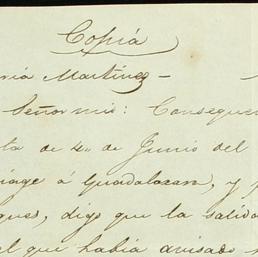 Copia
ria Martinez —
Señor mio: Consequen
ta de 4 de Junio del
iage á Guadalajara, y p
ques, digo que la salida
el que habia avisado